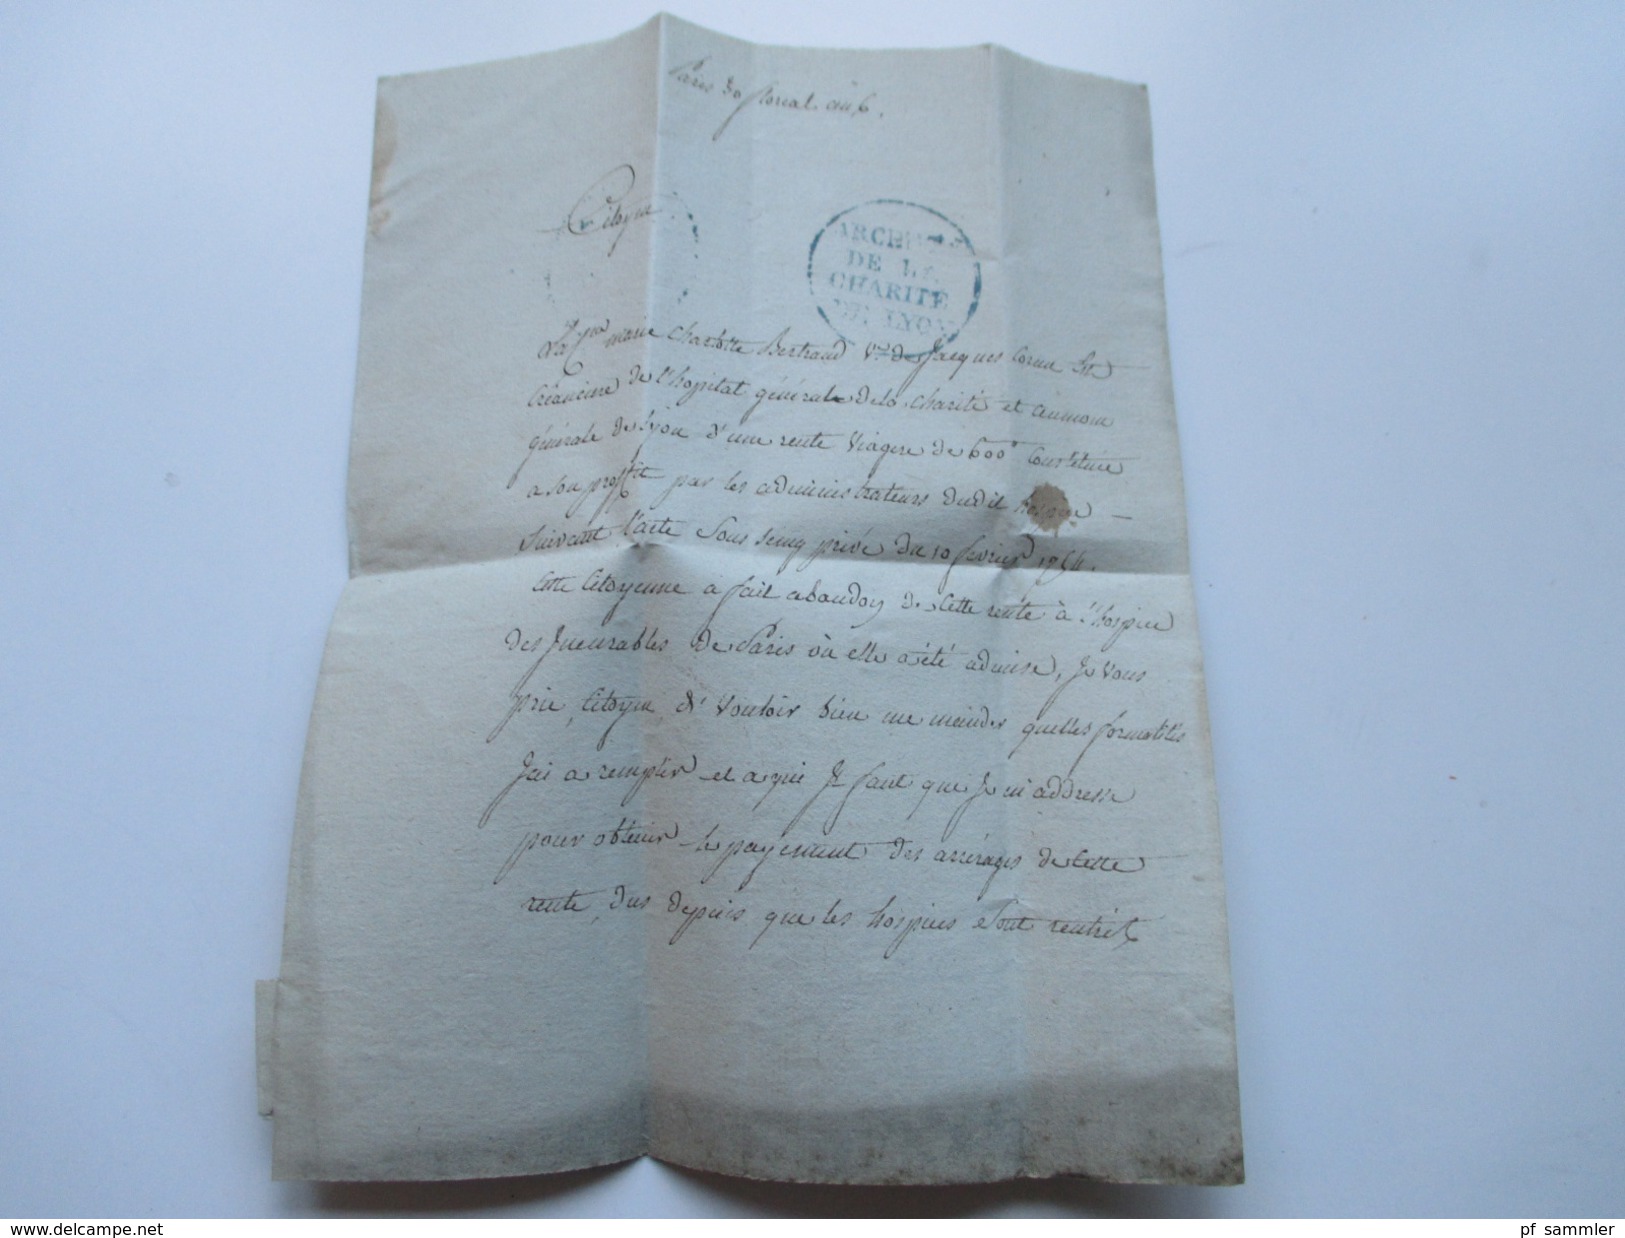 Paris 30 floréal an 6.
Citoyen
ARCHIVES
DE LA
CHARITÉ
DE LYON
La Cyenne marie Charlotte Bertrand Ve de Jacques Cornu Est
Créanciere de l'hopital général de la charité et aumone
générale de Lyon d'une rente Viagere de 600# Constituée
a son proffit par les administrateurs dudit hospice —
Suivant l'acte Sous seing privé du 10 février 1754.
Cette Citoyenne a fait abandon de Cette rente à l'hospice
des Incurables de Paris où elle a été admise, Je vous
prie, Citoyen, d'Vouloir bien me mander quelles formalités
J'ai a remplir et a qui Il faut que Je m'addresse
pour obtenir le payement des arrérages de Cette
rente, dus depuis que les hospices Sont rentrés
www.delcampe.net
pf_sammler